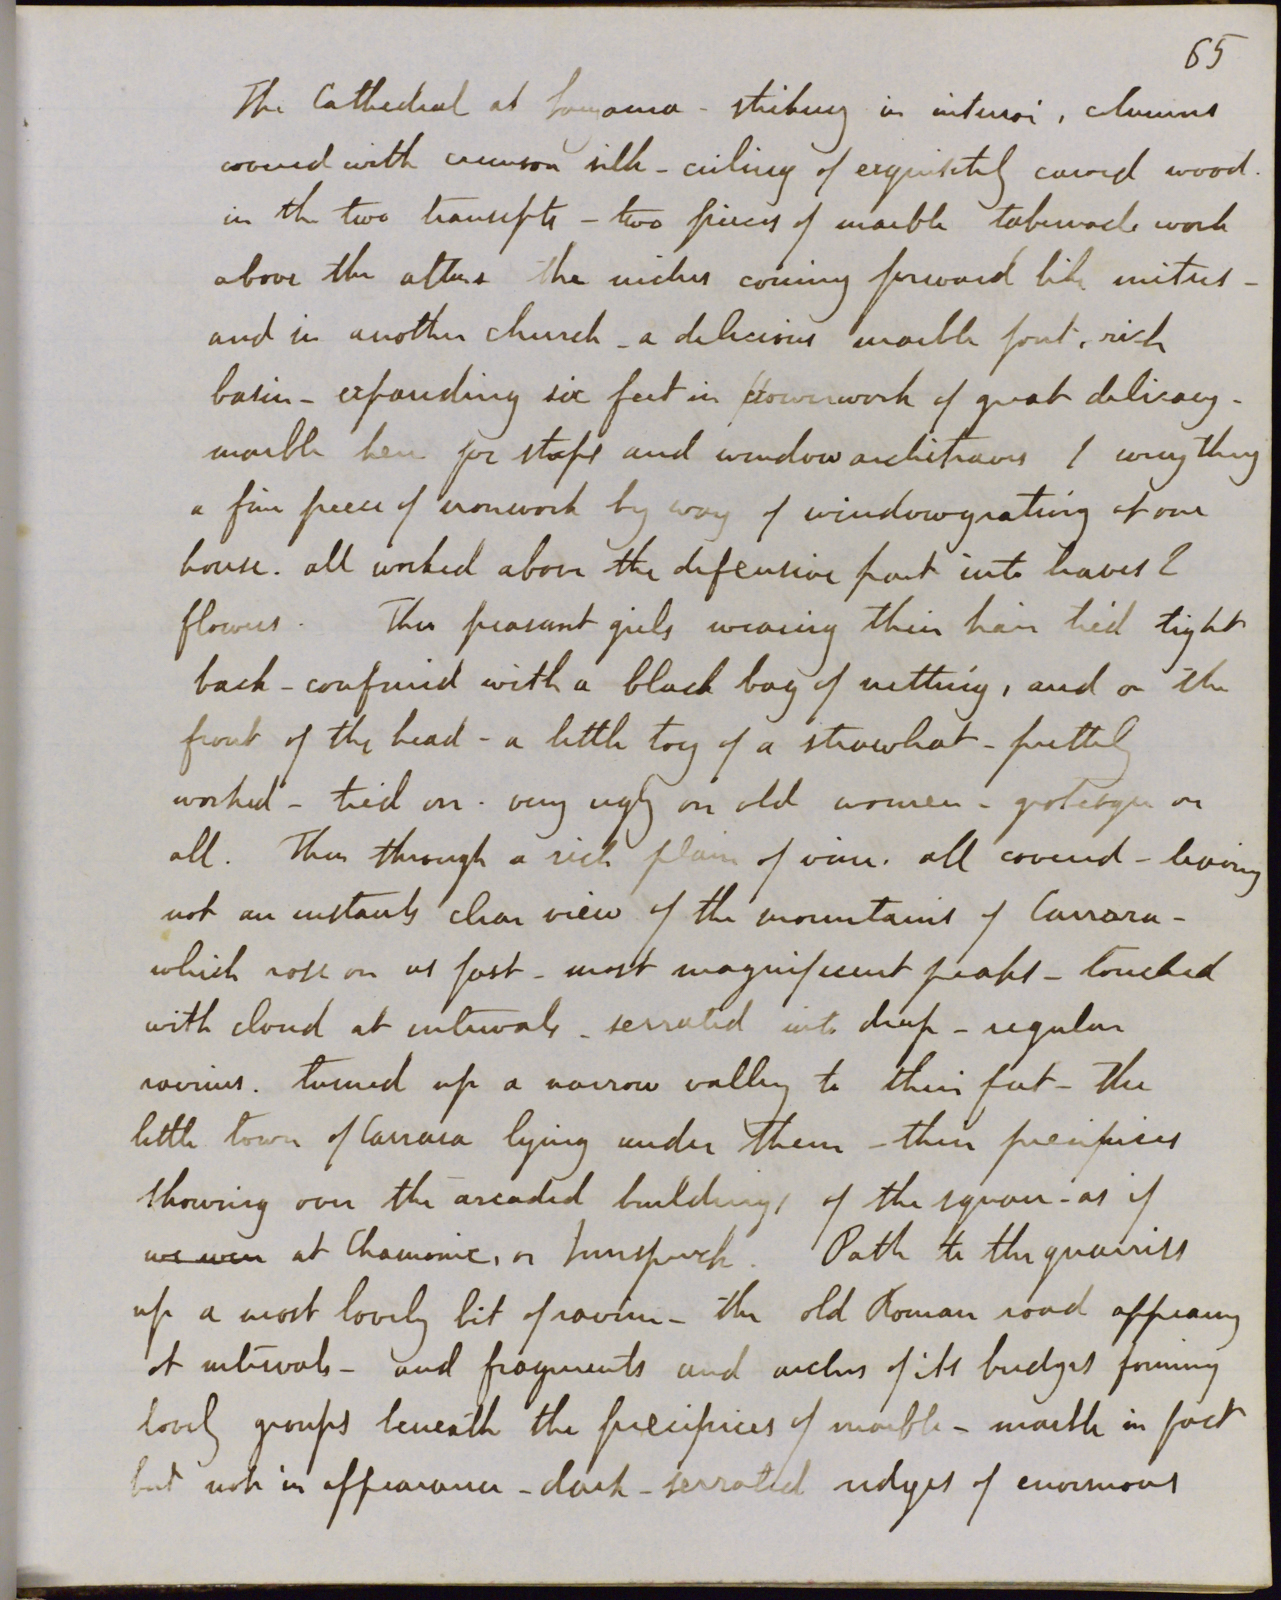 65
The Cathedral at Sarzana - striking in interior, columns
covered with crimson silk - ceiling of exquisitely carved wood.
in the two transepts - two pieces of marble tabernacle work
above the altars the niches coming forward like mitres -
and in another church - a delicious marble font, rich
basin - expanding six feet in flowerwork of great delicacy -
marble here for steps and window architraves & everything
a fine piece of ironwork by way of windowgrating at one
house. all worked above the defensive part into leaves &
flowers. The peasant girls wearing their hair tied tight
back - confined with a black bag of netting, and on the
front of the head - a little toy of a strawhat - prettily
worked - tied on. very ugly on old women - grotesque on
all. Then through a rich plain of vine. all covered - leaving
not an instants clear view of the mountains of Carrara -
which rose on us fast - most magnificent peaks - touched
with cloud at intervals - serrated into deep - regular
ravines. turned up a narrow valley to their feet - The
little town of Carrara lying under them - their precipices
showing over the arcaded buildings of the square - as if
we were at Chamonix, or Innspruck. Path to the quarries
up a most lovely bit of ravine - the old Roman road appearing
at intervals - and fragments and arches of its bridges forming
lovely groups beneath the precipices of marble - marble in fact
but not in appearance - dark - serrated ridges of enormous